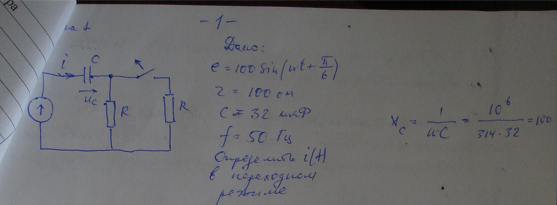 - 1 -
Дано:
e = 100 Sin(wt + π/6)
r = 100 ом
C = 32 мкФ
f = 50 Гц
Определить i(t)
в переходном
режиме
i
C
u_C
R
R
X_C = 1/wC = 10^6/314·32 = 100